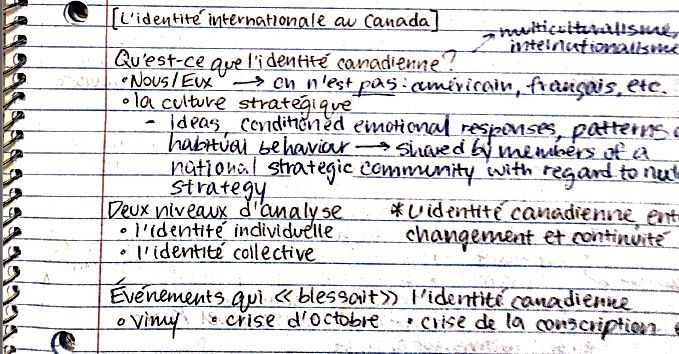 [L'identité internationale au Canada]
multiculturalisme,
internationalisme
Qu'est-ce que l'identité canadienne?
• Nous/Eux → on n'est pas: américain, français, etc.
• la culture stratégique
- Ideas, conditioned emotional responses, patterns
habitual behaviour → shared by members of a
national strategic community with regard to
strategy
Deux niveaux d'analyse
• l'identité individuelle
• l'identité collective
* L'identité canadienne,
changement et continuité
Événements qui «blessait» l'identité canadienne
• Vimy • crise d'octobre • crise de la conscription